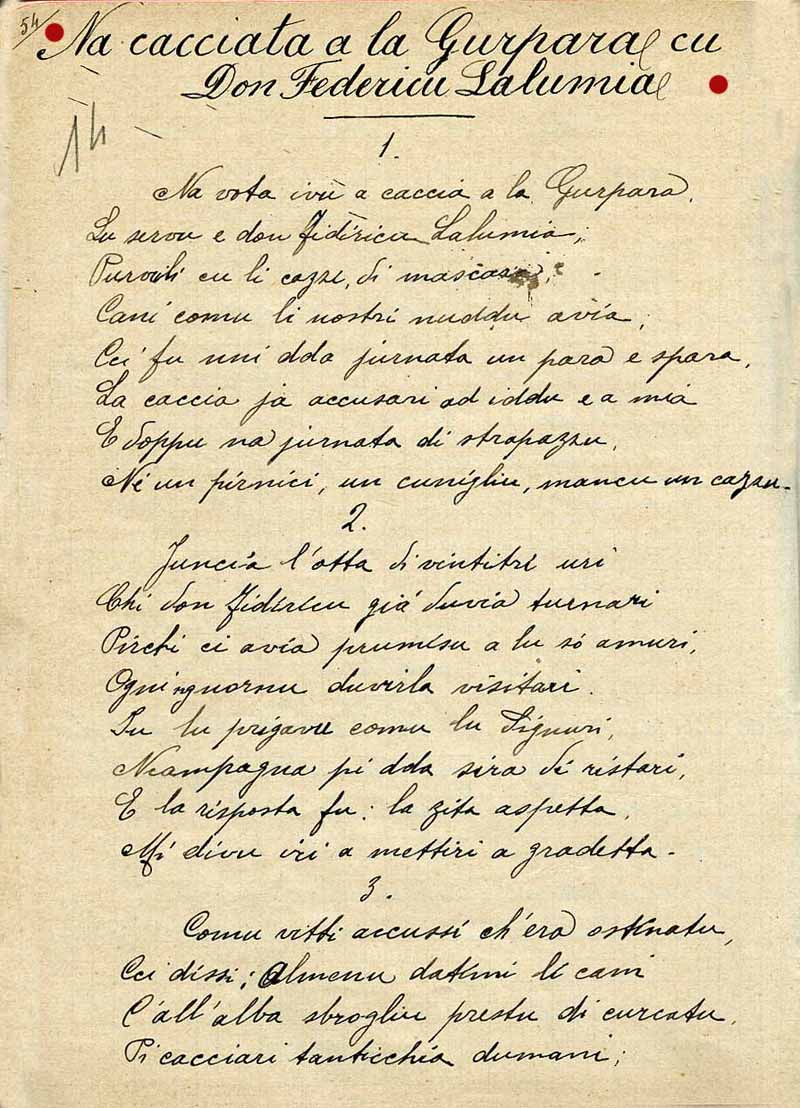 54
Na cacciata a la Gurpara cu
Don Federicu Lalumia
14
1.
Na vota ivu a caccia a la Gurpara,
Lu servu e don Fidiricu Lalumia,
Purvuli cu li cazzi, di mascara,
Cani comu li nostri nuddu avia,
Cci fu nni dda jurnata un para e spara,
La caccia ja accusari ad iddu e a mia
E doppu na jurnata di strapazzu,
Né un pirnici, un cunigliu, mancu un cazzu.
2.
Juncia l'otta di vintitri uri
Chi don Fidiricu già duvia turnari
Pirchi ci avia prumisu a lu só amuri,
Ogni nguornu duvirla visitari.
Iu lu prigavu comu lu Signuri,
Ncampagna pi dda sira di ristari,
E la risposta fu: la zita aspetta,
Mi divu iri a mettiri a gradetta.
3.
Comu vitti accussi ch'era ostinatu,
Cci dissi; Almenu datimi li cani
C'all'alba sbrogliu prestu di curcatu,
Pi cacciari tanticchia dumani;